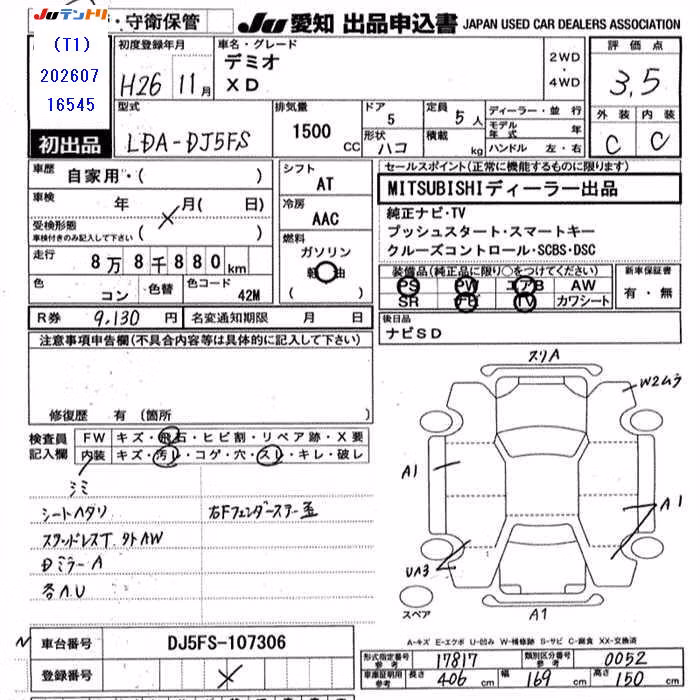 Juテントリ
・守衛保管
Ju 愛知 出品申込書 JAPAN USED CAR DEALERS ASSOCIATION
(T1)
202607
16545
初出品
初度登録年月
H26 11月
車名・グレード
デミオ
XD
2WD
・
4WD
評価点
3.5
外装 内装
C C
型式
LDA-DJ5FS
排気量
1500 CC
ドア
5
形状 ハコ
定員 5人
積載 kg
ディーラー・並行
モデル年式 年
ハンドル 左・右
車歴 自家用・( )
車検 年 月( 日)
受検形態
車検付きのみ記入して下さい ( )
走行 8万8千880km
色 コン 色替 色コード 42M
シフト
AT
冷房
AAC
燃料
ガソリン
軽油
( )
セールスポイント(正常に機能するものに限ります)
MITSUBISHIディーラー出品
純正ナビ・TV
プッシュスタート・スマートキー
クルーズコントロール・SCBS・DSC
装備品(純正品に限り○をつけてください)
PS PW エアB AW
SR ナビ TV カワシート
新車保証書
有・無
R券 9,130円 名変通知期限 月 日
後日品
ナビSD
注意事項申告欄(不具合内容等は具体的に記入して下さい)
修復歴 有 (箇所 )
検査員
記入欄
FW キズ・飛石・ヒビ割・リペア跡・X要
内装 キズ・汚レ・コゲ・穴・スレ・キレ・破レ
シミ
シートヘタリ
スタッドレスT 外AW
Dミラー A
各A.U
右Fフェンダーステー歪
スリA
W2ムラ
A1
A1
UA3
スペア
A1
A-キズ E-エクボ U-凹み W-補修跡 S-サビ C-腐食 XX-交換済
車台番号 DJ5FS-107306
登録番号
形式指定番号 参考 17817 類別区分番号 参考 0052
車庫証明用 参考 長さ 406cm 幅 169cm 高さ 150cm